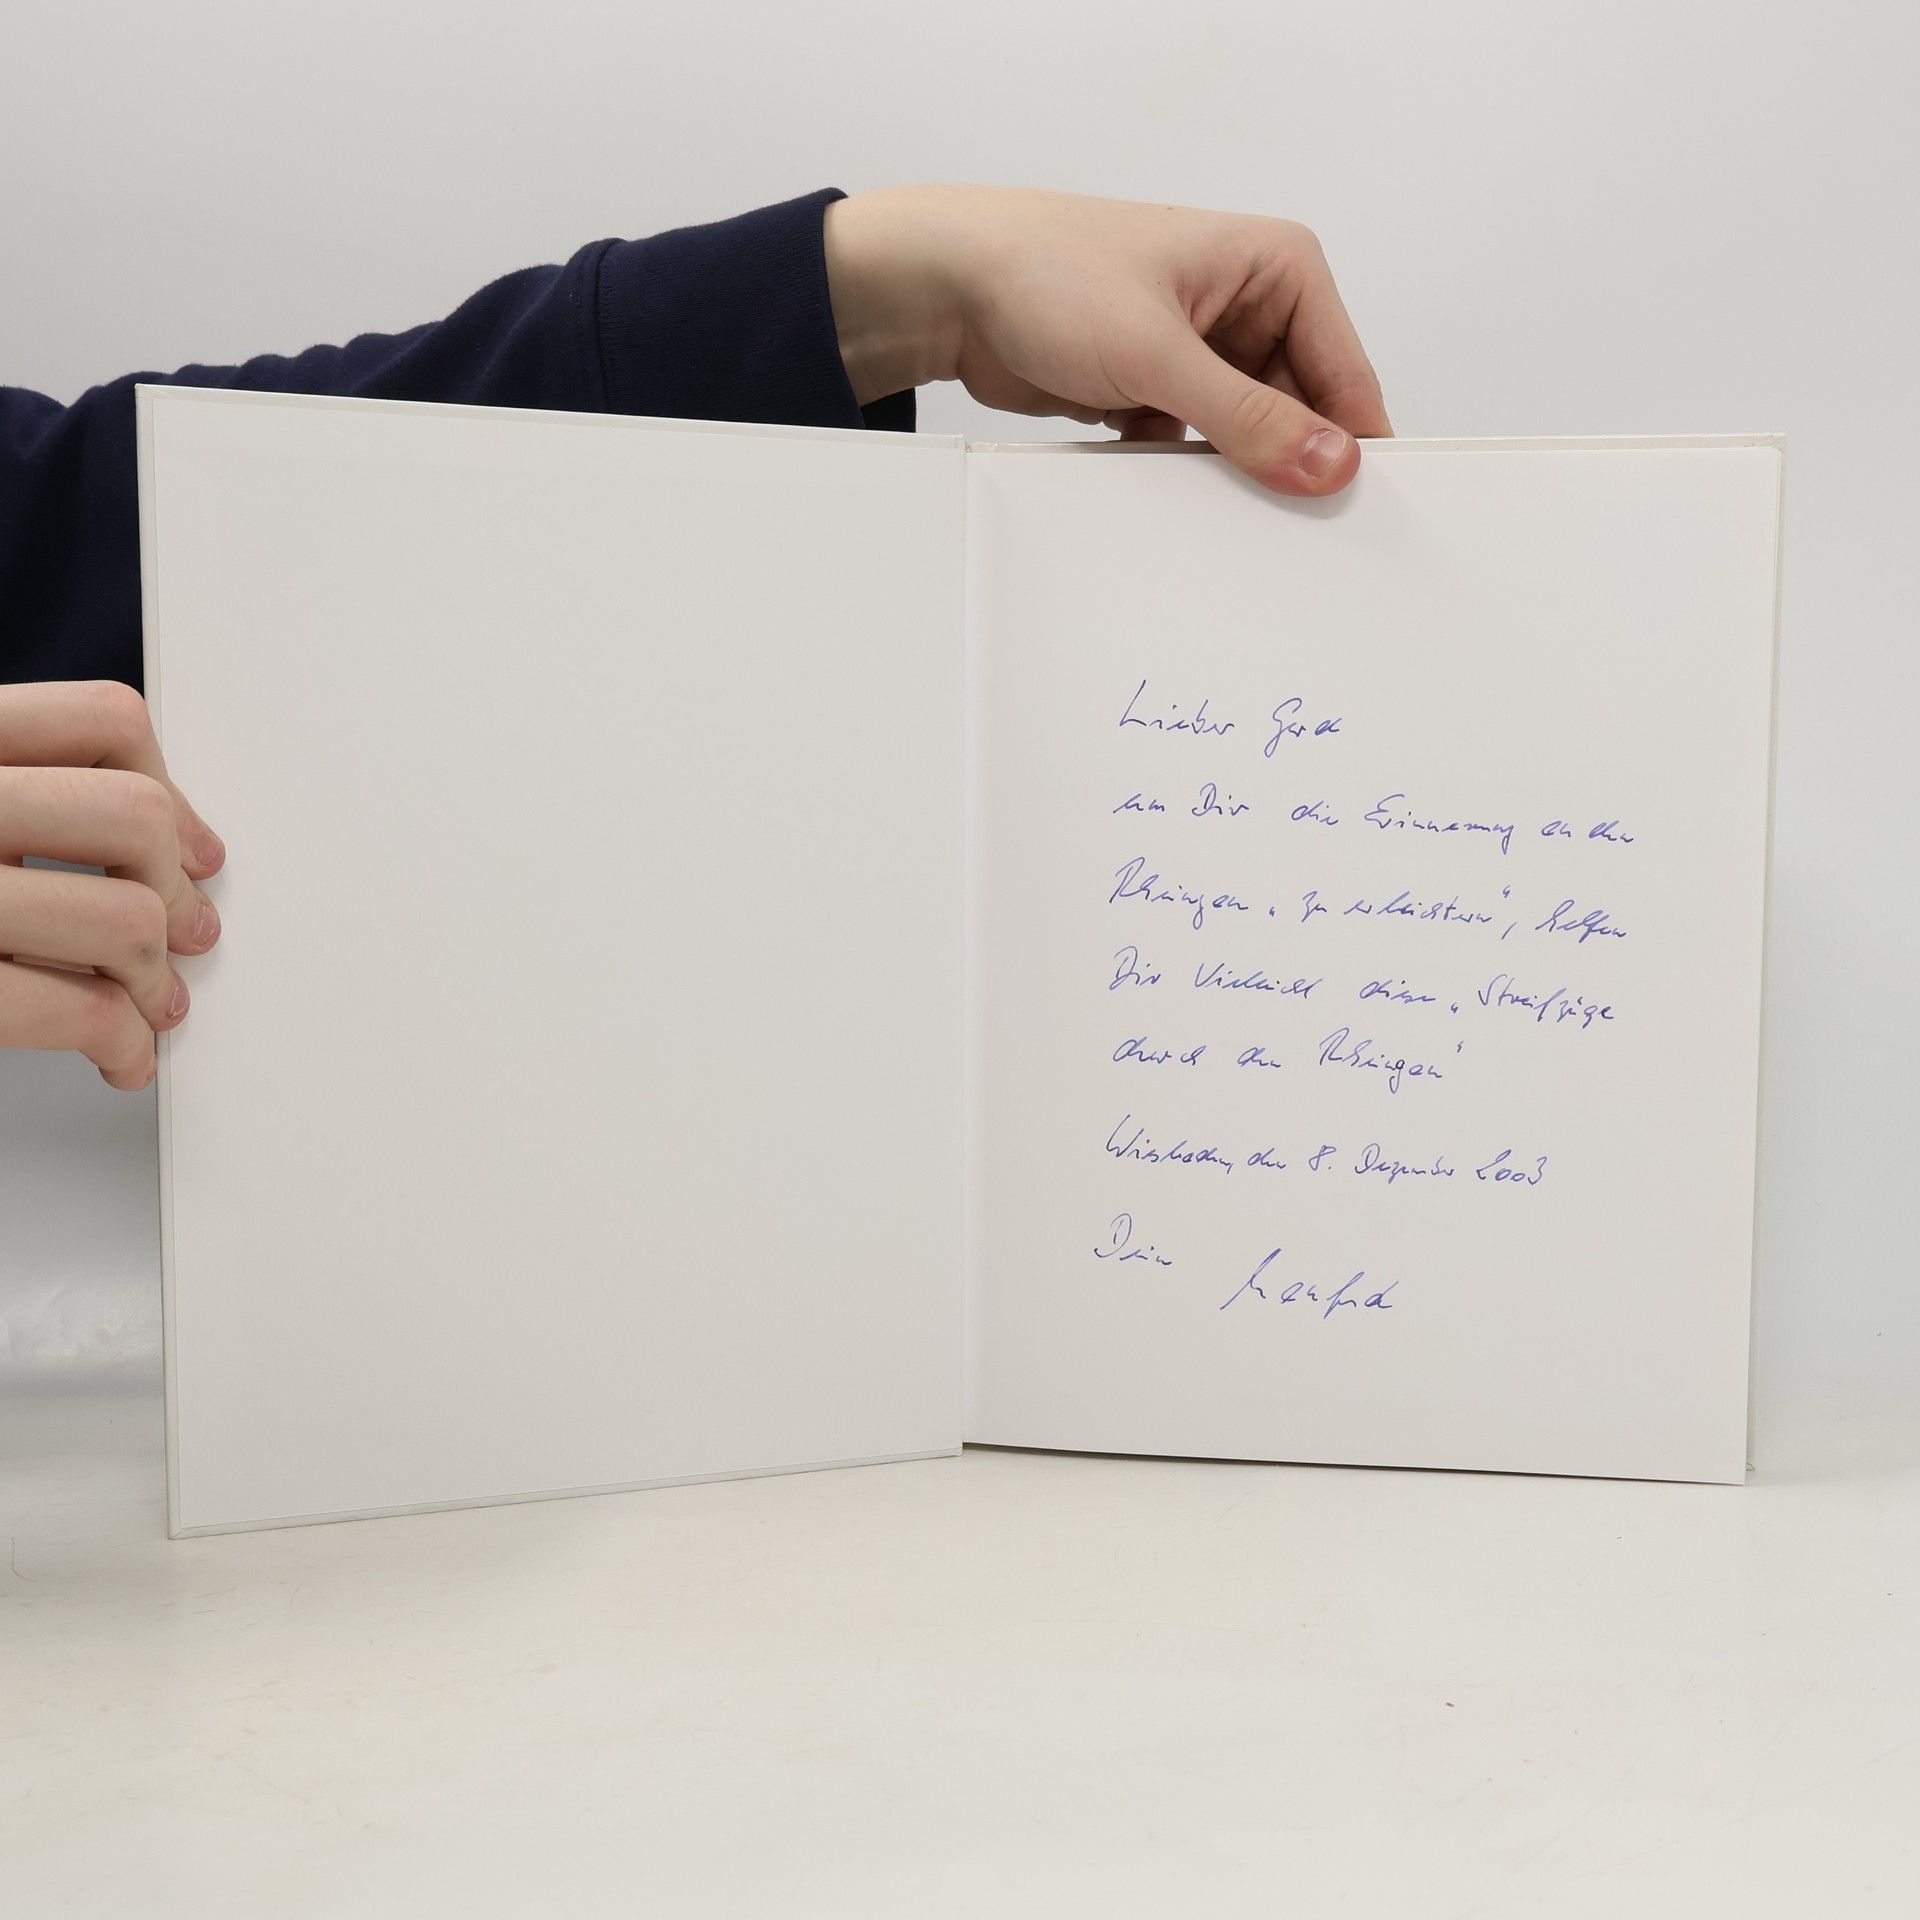 Lieber Gerd
um Dir die Erinnerung an den
Rheingau „zu erleichtern“, helfen
Dir vielleicht diese „Streifzüge
durch den Rheingau“
Wiesbaden, den 8. Dezember 2003
Dein Manfred